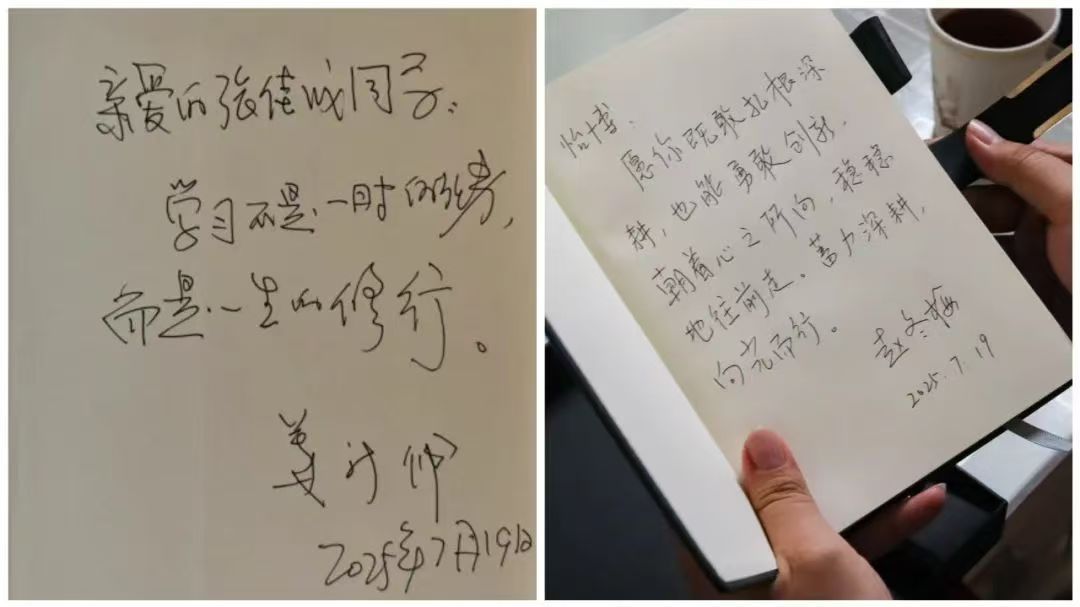 亲爱的张佳成同学:
学习不是一时的
而是一生的修行。
姜
2025年7月19日
怡博:
愿你既敢扎根深
耕,也能勇敢创新,
朝着心之所向,稳稳
地往前走。蓄力深耕,
向光而行。
赵冬梅
2025.7.19